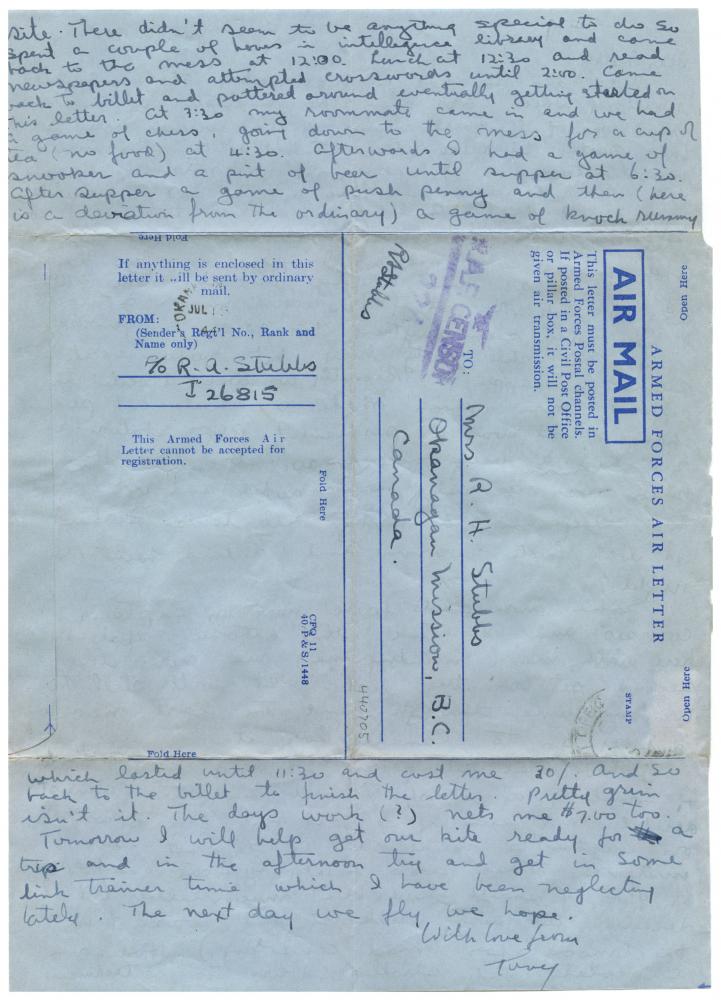 site. There didn't seem to be anything special to do so
spent a couple of hours in intelligence library and came
back to the mess at 12:00. Lunch at 12:30 and read
newspapers and attempted crosswords until 2:00. Came
back to billet and pottered around eventually getting started on
this letter. At 3:30 my roommate came in and we had
a game of chess, going down to the mess for a cup of
tea (no food) at 4:30. Afterwards I had a game of
snooker and a pint of beer until supper at 6:30.
After supper a game of push penny and then (here
is a deviation from the ordinary) a game of knock rummy
Fold Here
If anything is enclosed in this
letter it will be sent by ordinary
mail.
JUL
FROM:
(Sender's Regt'l No., Rank and
Name only)
c/o R. A. Stubbs
J 26815
This Armed Forces Air
Letter cannot be accepted for
registration.
Fold Here
CFQ 11
40 P & S/1448
Open Here
ARMED FORCES AIR LETTER
AIR MAIL
This letter must be posted in
Armed Forces Postal channels.
If posted in a Civil Post Office
or pillar box, it will not be
given air transmission.
R.A.F. CENSOR
RAStubbs
TO:
Mrs R. H. Stubbs
Okanagan Mission, B.C.
Canada.
440705
STAMP
Open Here
Fold Here
which lasted until 11:30 and cost me 30/. And so
back to the billet to finish the letter. Pretty grim
isn't it. The days work (?) nets me $7.00 too.
Tomorrow I will help get our kite ready for a
trip and in the afternoon try and get in some
link trainer time which I have been neglecting
lately. The next day we fly we hope.
With love from